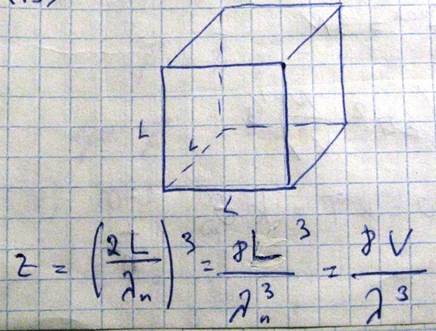 L
L
L
z = (2L/λₙ)³ = 8L³/λₙ³ = 8V/λ³